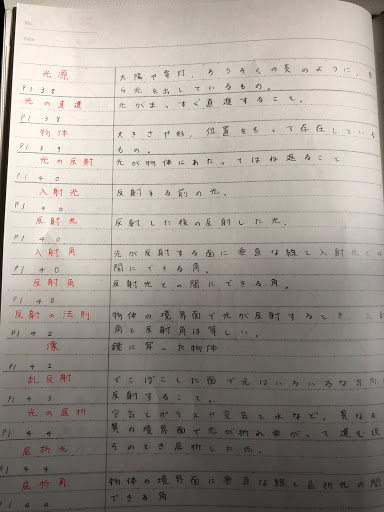 No.
Date
光源 太陽や電灯、ろうそくの炎のように、自
P138 ら光を出しているもの。
光の直進 光がまっすぐ直進すること。
P138
物体 大きさや形、位置をもって存在している
P139 もの。
光の反射 光が物体にあたってはね返ること
P140
入射光 反射する前の光。
P140
反射光 反射した後の反射した光。
P140
入射角 光が反射する面に垂直な線と入射光との
P140 間にできる角。
反射角 反射光との間にできる角。
P140
反射の法則 物体の境界面で光が反射するとき、入射
P142 角と反射角は等しい。
像 鏡に写った物体
P142
乱反射 でこぼこした面で光はいろいろな方向
P143 反射すること。
光の屈折 空気とガラスや空気と水など、異なる
P144 質の境界面で光が折れ曲がって進む現
屈折光 そのとき屈折した光。
P144
屈折角 物体の境界面に垂直な線と屈折光の間
P144 できる角